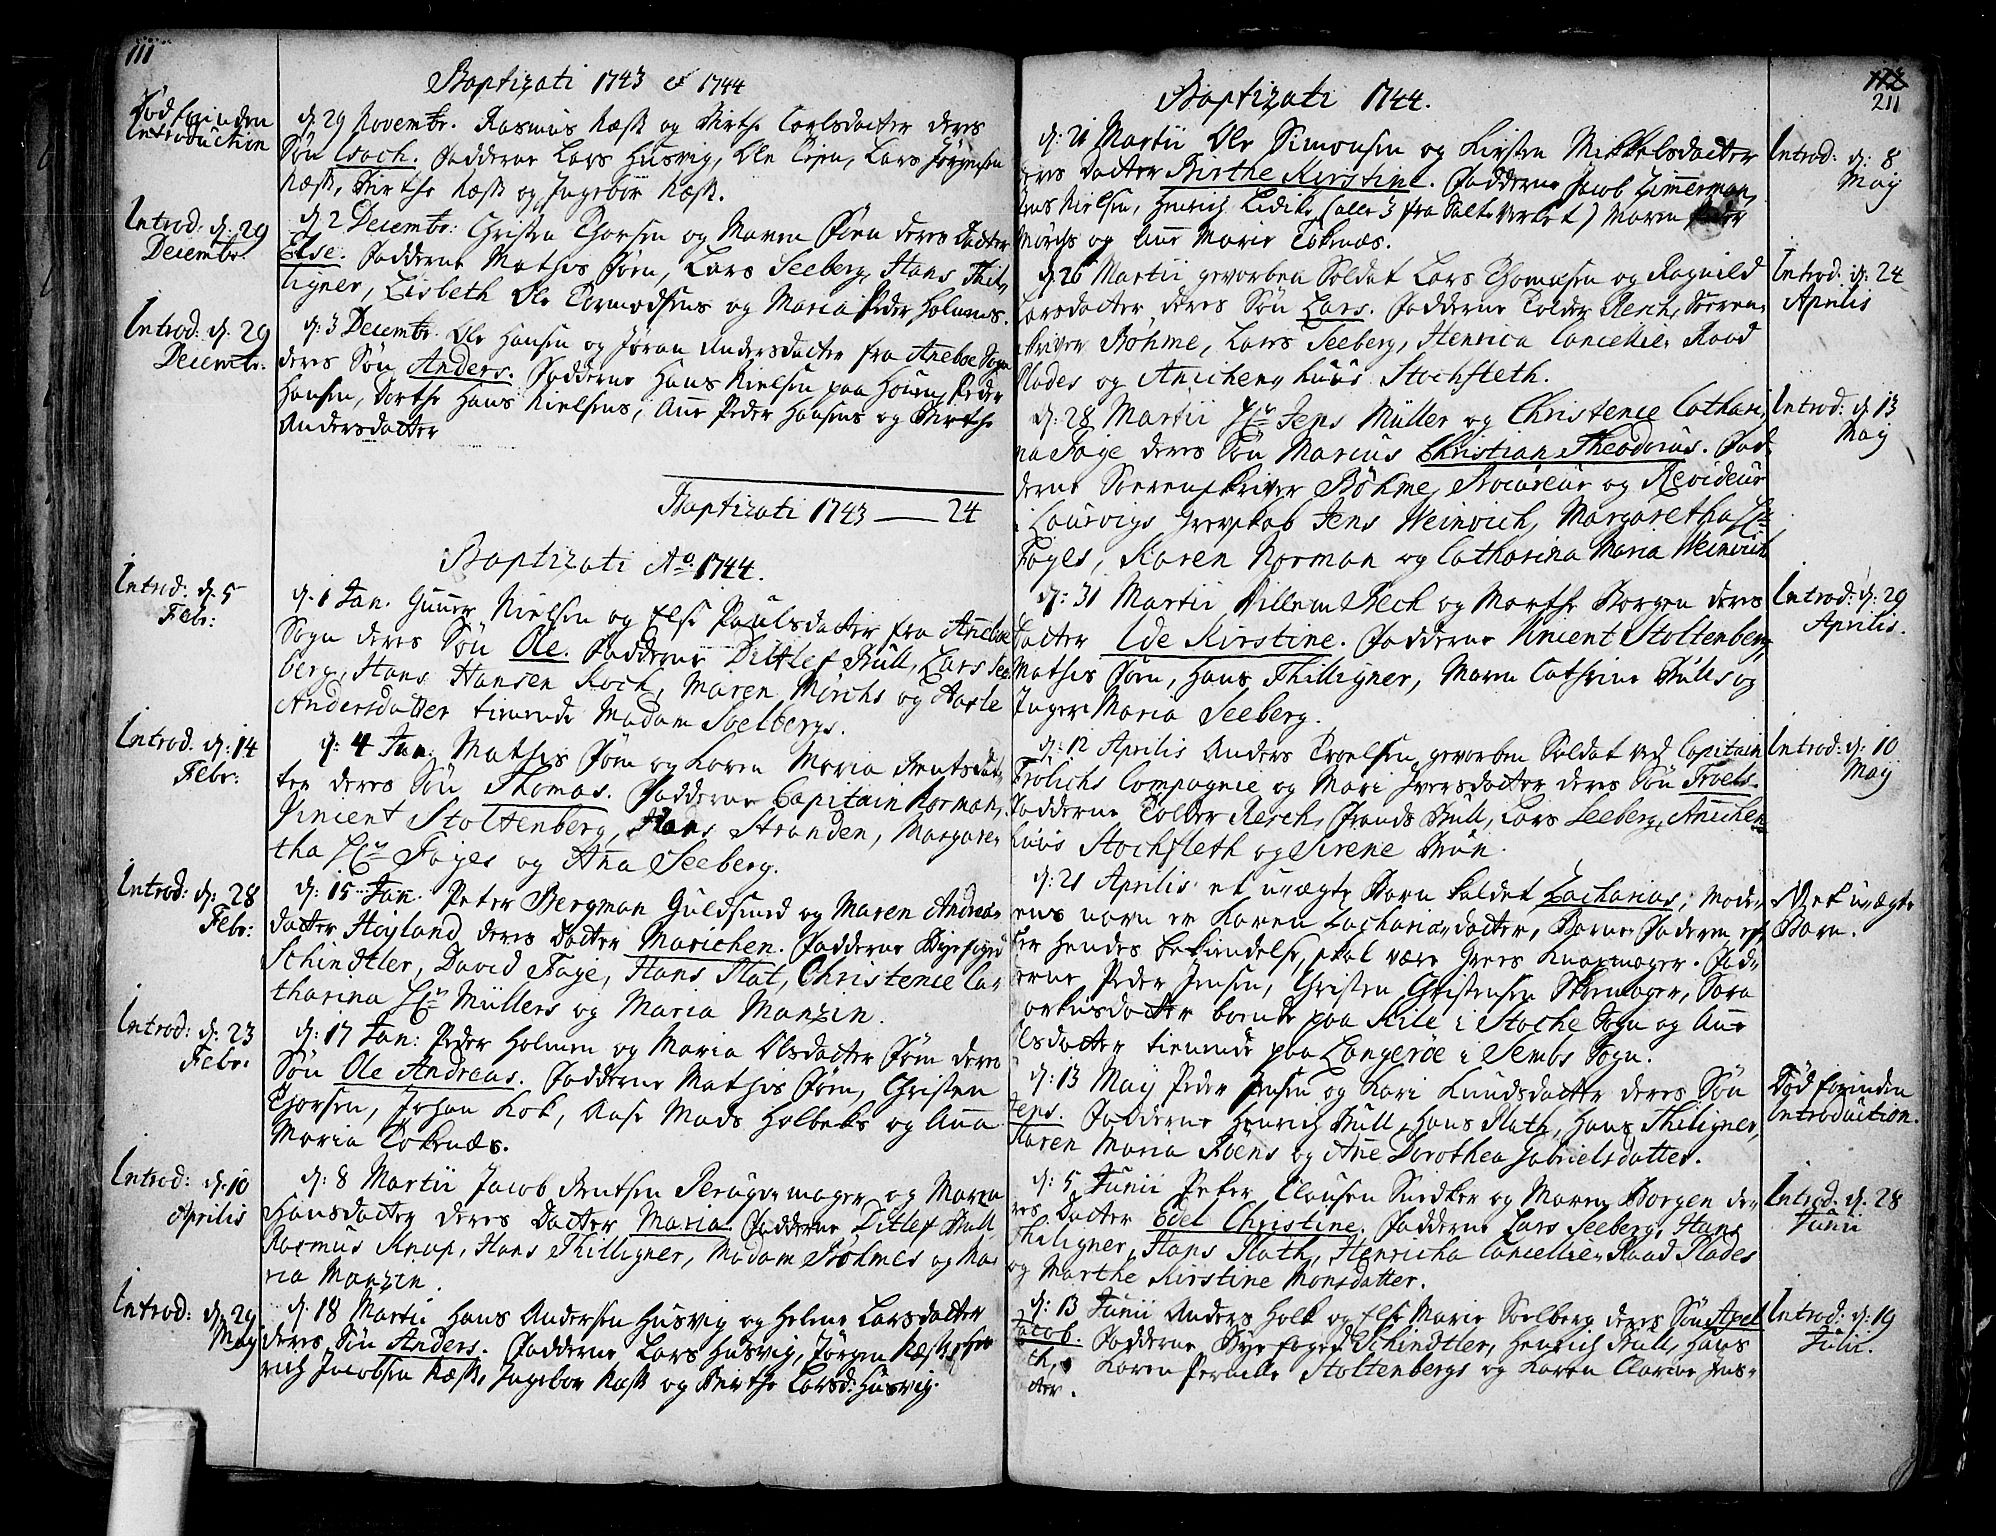 111
Baptizati 1743 et 1744
Død forinden
Introduction
d. 29 Novembr. Rasmus Næss og Birthe Carlsdatter deres
Søn Isach. Fadderne Lars Husvig, Ole Lars Jørgensen
Næss, Birthe Næss og Ingebor Næss.
Introd: d. 29
Decembr.
d. 2 Decembr: Christen Thorsen og Maren Jörn deres Datter
Else. Fadderne Mathis Jörn, Lars Seeberg, Hans Thil-
ligner, Lisbeth Ole Tormodsens og Maria Peder Holmens.
Introd. d. 29
Decembr.
d: 3 Decembr. Ole Hansen og Jøran Andersdatter fra Aneboe Sogn
deres Søn Anders. Fadderne Hans Nielsen paa Houen, Peder
Hansen, Dorthe Hans Nielsens, Anne Peder Hansens og Birthe
Andersdatter
Baptizati 1743 — 24
Baptizati Ao. 1744.
Introd: d. 5
Febr:
d. 1 Jan. Guner Nielsen og Else Paulsdatter fra Aneboe
Sogn deres Søn Ole. Fadderne Ditlef Bull, Lars See-
berg, Hans Hansen Koch, Maren Mörchs og Aasle
Andersdatter tienende Madam Soelbergs.
Introd. d: 14
Febr:
d: 4 Jan. Mathis Jörn og Karen Maria Bentsdat-
ter deres Søn Thomas. Fadderne Capitain Norman,
Vincent Stoltenberg, Hans Stranden, Margare-
tha Hr Fajes og Anna Seeberg.
Introd: d. 28
Febr:
d: 15 Jan. Peter Bergman Guldsmed og Maren Andreas-
datter Høyland deres Datter Marichen. Fadderne Byefoged
Schindtler, David Faje, Hans Plat, Christence Ca-
tharina Hr Müllers og Maria Manzin.
Introd: d. 23
Febr:
d: 17 Jan: Peder Holmen og Maria Olsdatter Jörn deres
Søn Ole Andreas. Fadderne Mathis Jörn, Christen
Thorsen, Johan Kok, Aase Mads Holbeks og Anna
Maria Tokenæs.
Introd: d. 10
Aprilis
d: 8 Martii Jacob Bentsen Peruqvemager og Maria
Hansdatter deres Datter Maria. Fadderne Ditlef Bull
Rasmus Knap, Hans Thilligner, Madam Böhmes og Ma-
ria Manzin.
Introd: d. 29
Maij
d. 18 Martii Hans Andersen Husvig og Helene Larsdatter
deres Søn Anders. Fadderne Lars Husvig, Jørgen Næss, Hen-
rich Jacobsen Næss, Ingebor Næss og Birthe Larsd: Husvig.
112
211
Baptizati 1744.
d: 21 Martii Ole Simonsen og Kirsten Mikkelsdatter
deres Datter Birthe Kirstine. Fadderne Jacob Zimerman,
Jens Nielsen, Henrich Lidike, (alle 3 fra Salt Verket) Maren
Mörchs og Anne Marie Tokenæs.
Introd: d: 8
Maij
d. 26 Martii gevorben Soldat Lars Thomasen og Ragnild
Larsdatter deres Søn Lars. Fadderne Tolder Resch, Soren-
skriver Böhme, Lars Seeberg, Henrica Cancellie Raad
Plades og Anichen Huus Stochfleth.
Introd: d: 24
Aprilis
d: 28 Martii Hr Jens Müller og Christence Cathari-
na Faje deres Søn Marcus Christian Theodorus. Fad-
derne Sorenskriver Böhme, Procureur og Revideur
i Laurvigs Grevskab Jens Weinwich, Margaretha Hr
Fajes, Karen Norman og Catharina Maria Weinwich
Introd: d: 13
Maij
d: 31 Martii Willem Bech og Marthe Borgen deres
Datter Ide Kirstine. Fadderne Vincent Stoltenberg,
Mathis Jörn, Hans Thilligner, Maren Cathrine Bulls og
Inger Maria Seeberg.
Introd: d: 29
Aprilis.
d: 12 Aprilis Anders Troelsen gevorben Soldat ved Capitain
Frölichs Compagnie og Mari Iversdatter deres Søn Troels.
Fadderne Tolder Resch, Frands Bull, Lars Seeberg, Anichen
Huus Stochfleth og Sirene Brun.
Introd: d: 10
Maij
d: 21 Aprilis et uægte Barn kaldet Zacharias; Mode-
rens navn er Karen Zachariædatter, Barne Faderen ef-
ter hendes bekiendelse, skal være Greers Knapmager. Fad-
derne Peder Jensen, Christen Christensen Skomager, Sara
Torkilsdatter boende paa Kile i Stoche Sogn og Anne
Olsdatter tienende paa Langeröe i Sembs Sogn.
NB et uægte
Barn.
d: 13 Maij Peder Jensen og Kari Knudsdatter deres Søn
Jens. Fadderne Henrich Bull, Hans Plath, Hans Thiligner,
Karen Maria Röens og Ane Dorothea Gabrielsdatter.
Død forinden
Introduction.
d: 5 Junii Peter Clausen Snedker og Maren Borgen de-
res Datter Edel Christine. Fadderne Lars Seeberg, Hans
Thiligner, Hans Plath, Henricha Cancellie Raad Plades
og Marthe Kirstine Monsdatter.
Introd. d. 28
Junii
d: 13 Junii Anders Holk og Else Marie Soelberg deres Søn Axel
Jacob. Fadderne Byefoged Schindtler, Henrich Bull, Hans
Karen Pernille Stoltenbergs og Karen Clarine Jens-
datter.
Introd: d: 19
Julii.